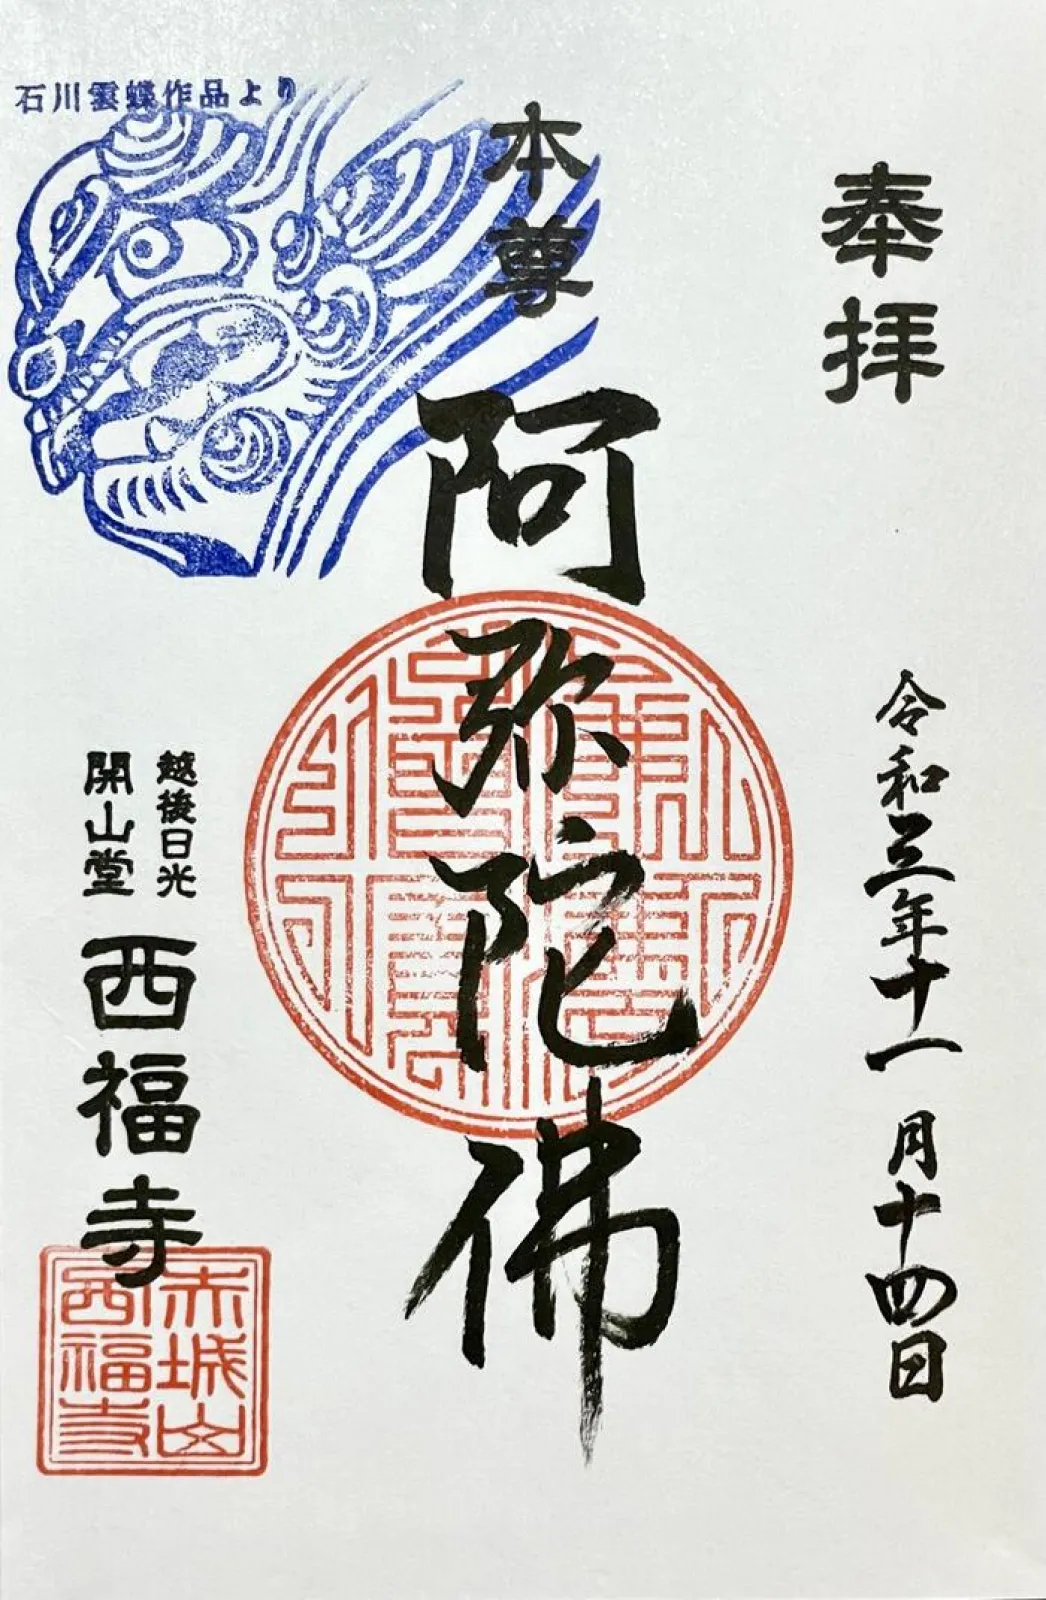 奉拝
令和三年十一月十四日
本尊
阿弥陀佛
石川雲蝶作品より
越後日光
開山堂
西福寺
赤城山
西福寺